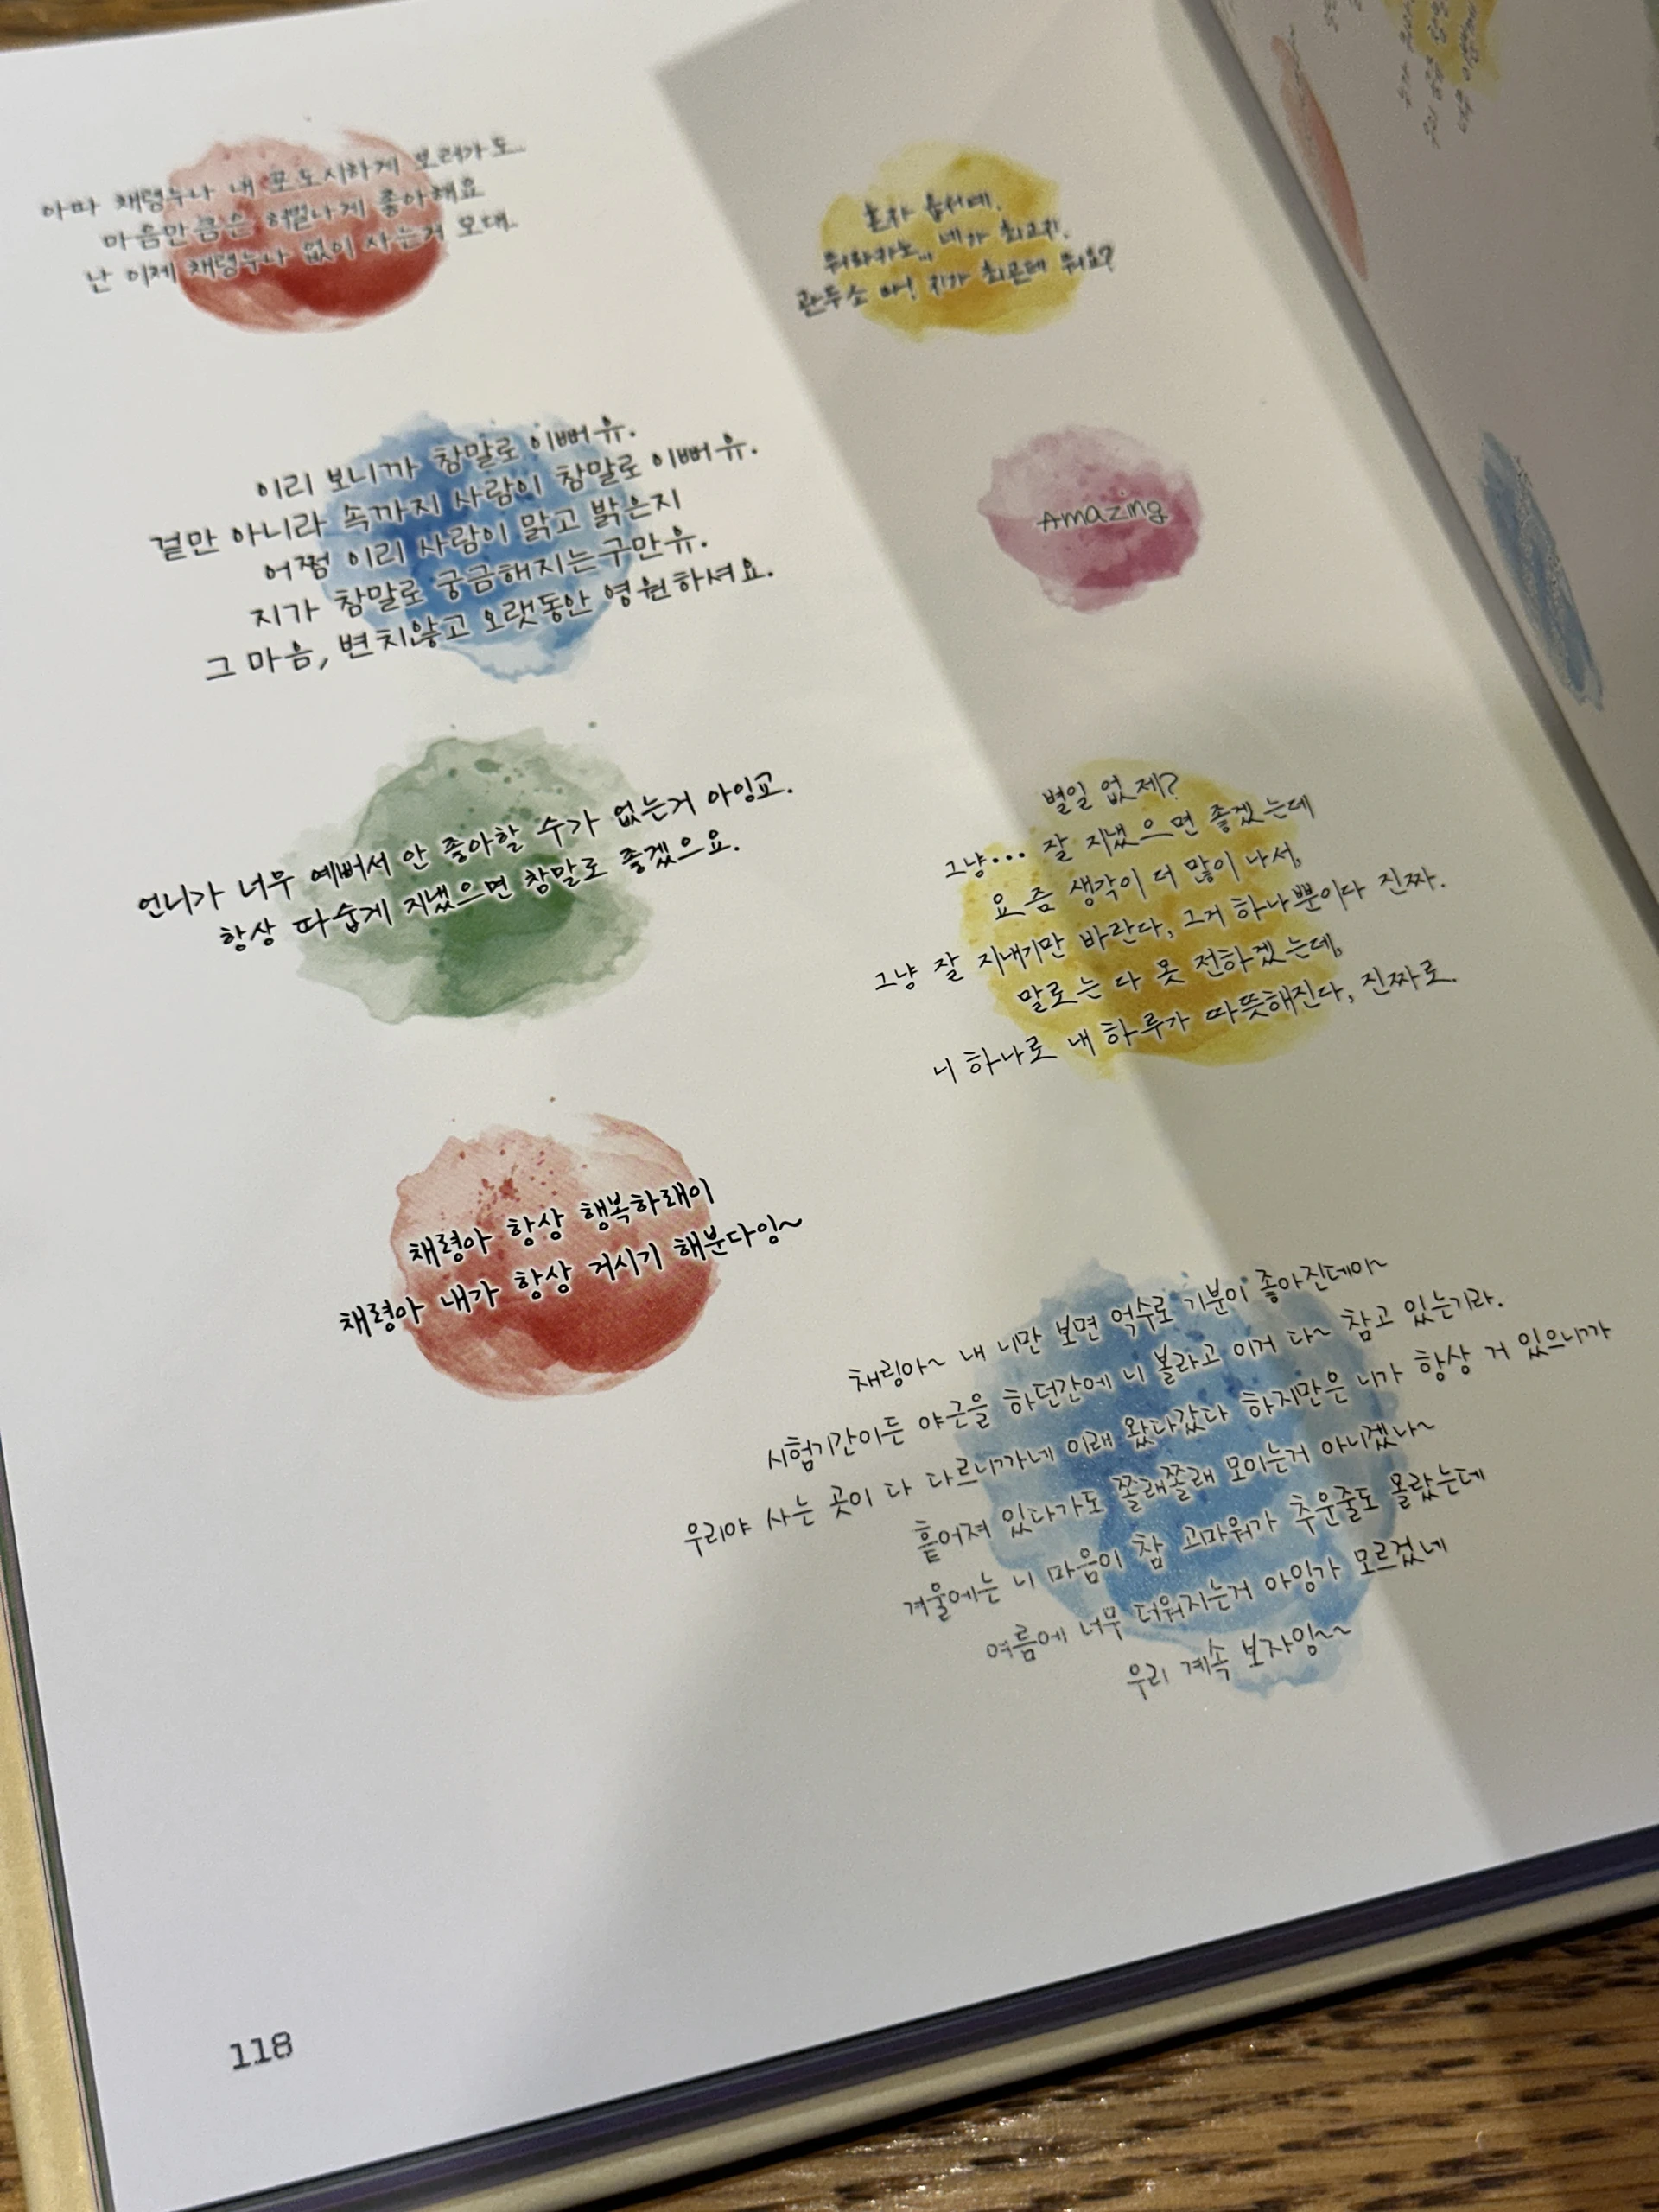 아따 채령누나 내 포도시하게 보러가도..
마음만큼은 허벌나게 좋아해요
난 이제 채령누나 없이 사는겨 모대..
혼자 옵서예.
뭐라카노... 네가 최고다.
관두소 마! 지가 최곤데 뭐요?
이리 보니까 참말로 이뻐유.
겉만 아니라 속까지 사람이 참말로 이뻐유.
어쩜 이리 사람이 맑고 밝은지
지가 참말로 궁금해지는구만유.
그 마음, 변치않고 오랫동안 영원하셔요.
Amazing
언니가 너무 예뻐서 안 좋아할 수가 없는거 아잉교.
항상 따숩게 지냈으면 참말로 좋겠으요.
별일 없제?
그냥... 잘 지냈으면 좋겠는데
요즘 생각이 더 많이 나서,
그냥 잘 지내기만 바란다, 그거 하나뿐이다 진짜.
말로는 다 못 전하겠는데,
니 하나로 내 하루가 따뜻해진다, 진짜로.
채령아 항상 행복하래이
채령아 내가 항상 거시기 해분다잉~
채링아~ 내 니만 보면 억수로 기분이 좋아진데이~
시험기간이든 야근을 하던간에 니 볼라고 이거 다~ 참고 있는기라.
우리야 사는 곳이 다 다르니까네 이래 왔다갔다 하지만은 니가 항상 거 있으니까
흩어져 있다가도 쫄래쫄래 모이는거 아니겠나~
겨울에는 니 마음이 참 고마워가 추운줄도 몰랐는데
여름에 너무 더워지는거 아잉가 모르겠네
우리 계속 보자잉~~
118